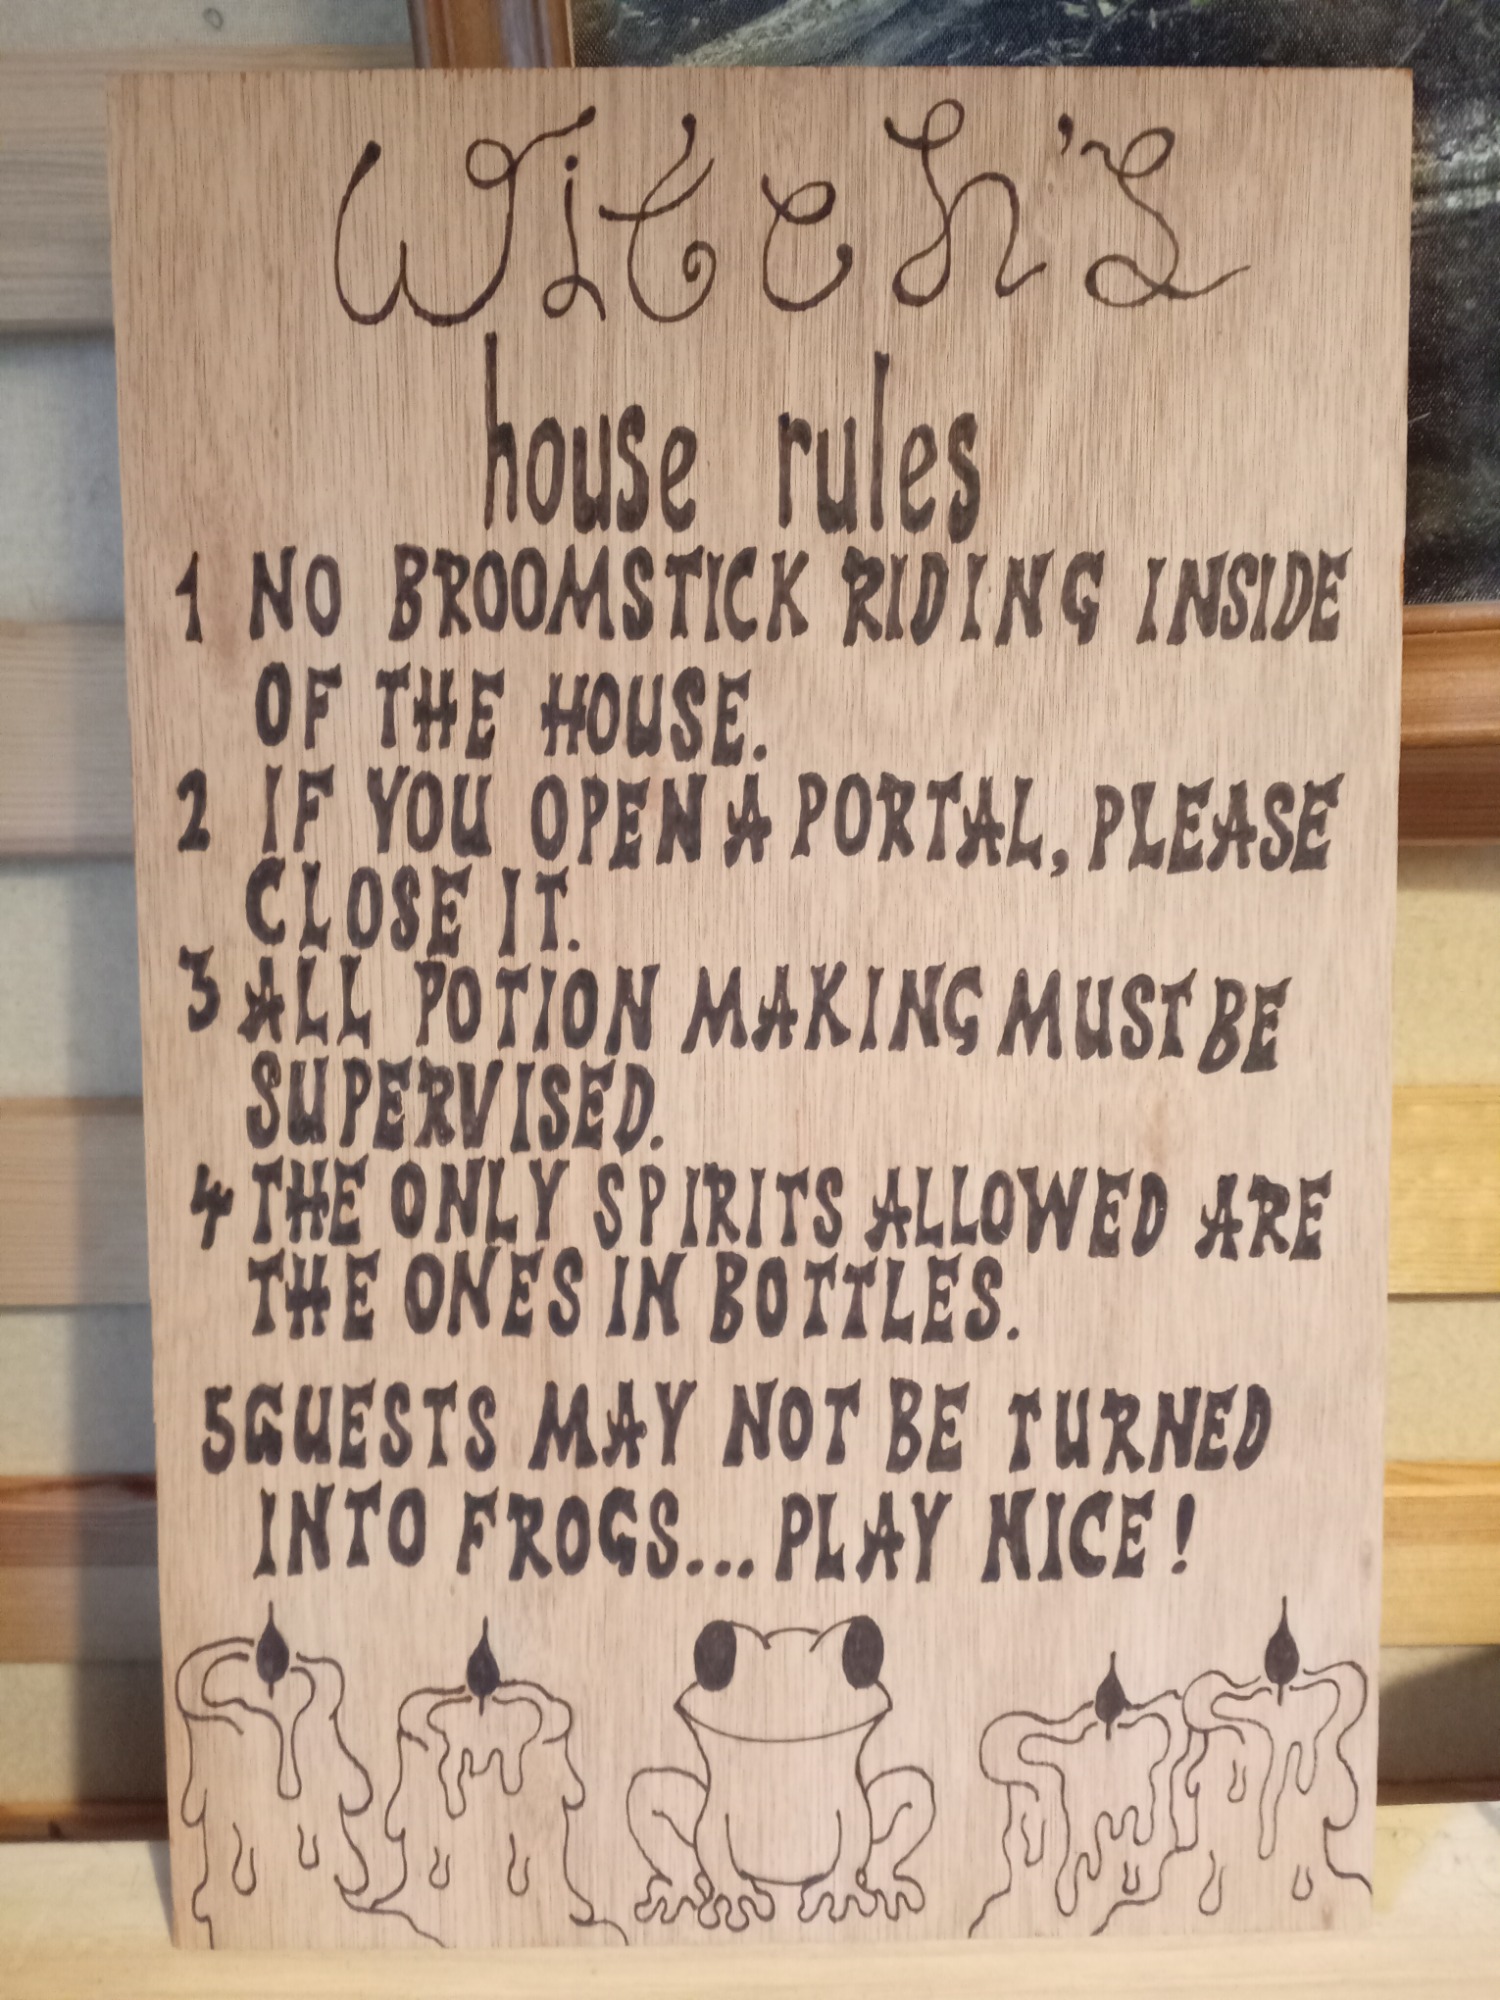 Witch's
house rules
1 NO BROOMSTICK RIDING INSIDE
OF THE HOUSE.
2 IF YOU OPEN A PORTAL, PLEASE
CLOSE IT.
3 ALL POTION MAKING MUST BE
SUPERVISED.
4 THE ONLY SPIRITS ALLOWED ARE
THE ONES IN BOTTLES.
5 GUESTS MAY NOT BE TURNED
INTO FROGS... PLAY NICE!